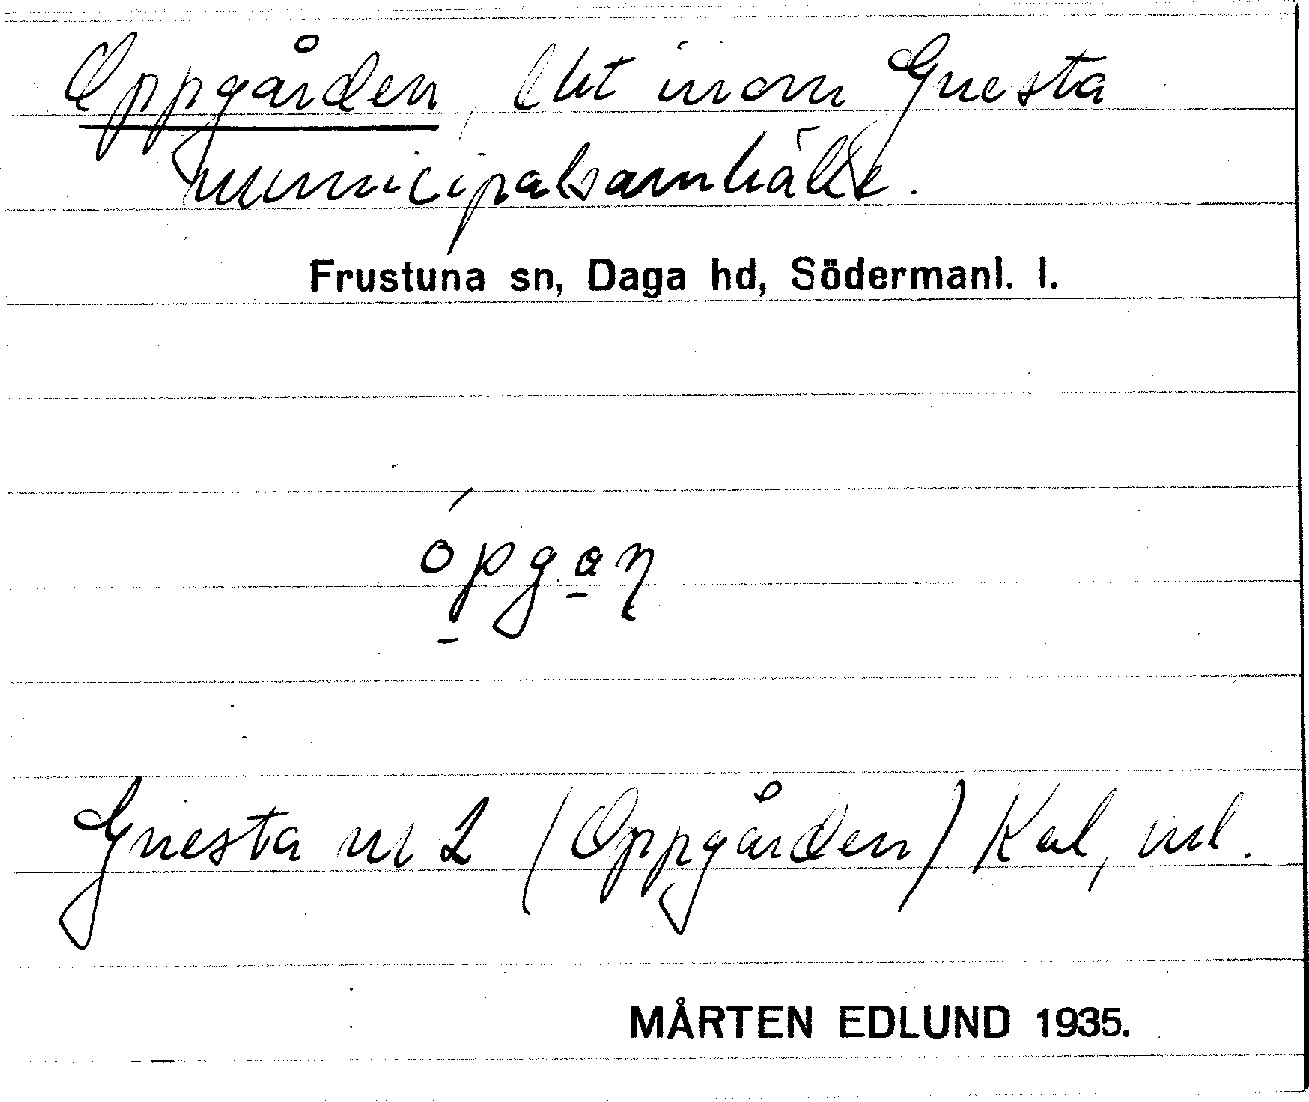 Oppgården, l:het inom Gnesta
municipalsamhälle.
Frustuna sn, Daga hd, Södermanl. l.
ópgaɳ
Gnesta nr 2 (Oppgården) Kal, url.
MÅRTEN EDLUND 1935.